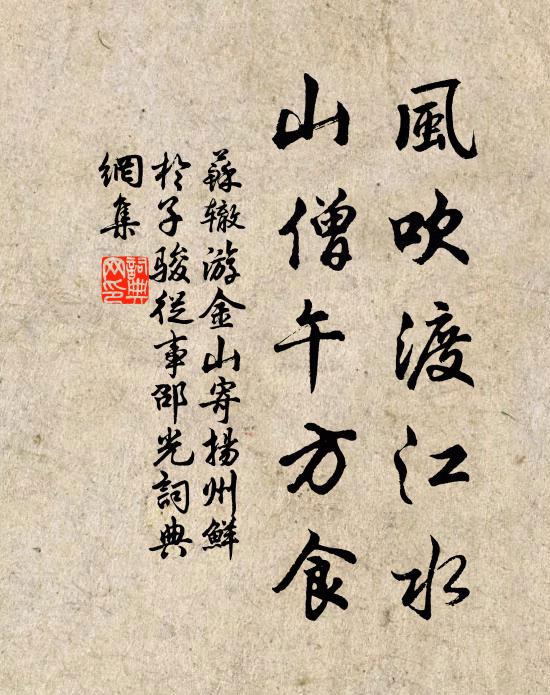 風吹渡江水
山僧午方食
蘇辙游金山寄揚州鮮
於子駿從事邵光詞典
網集
詞典
网印